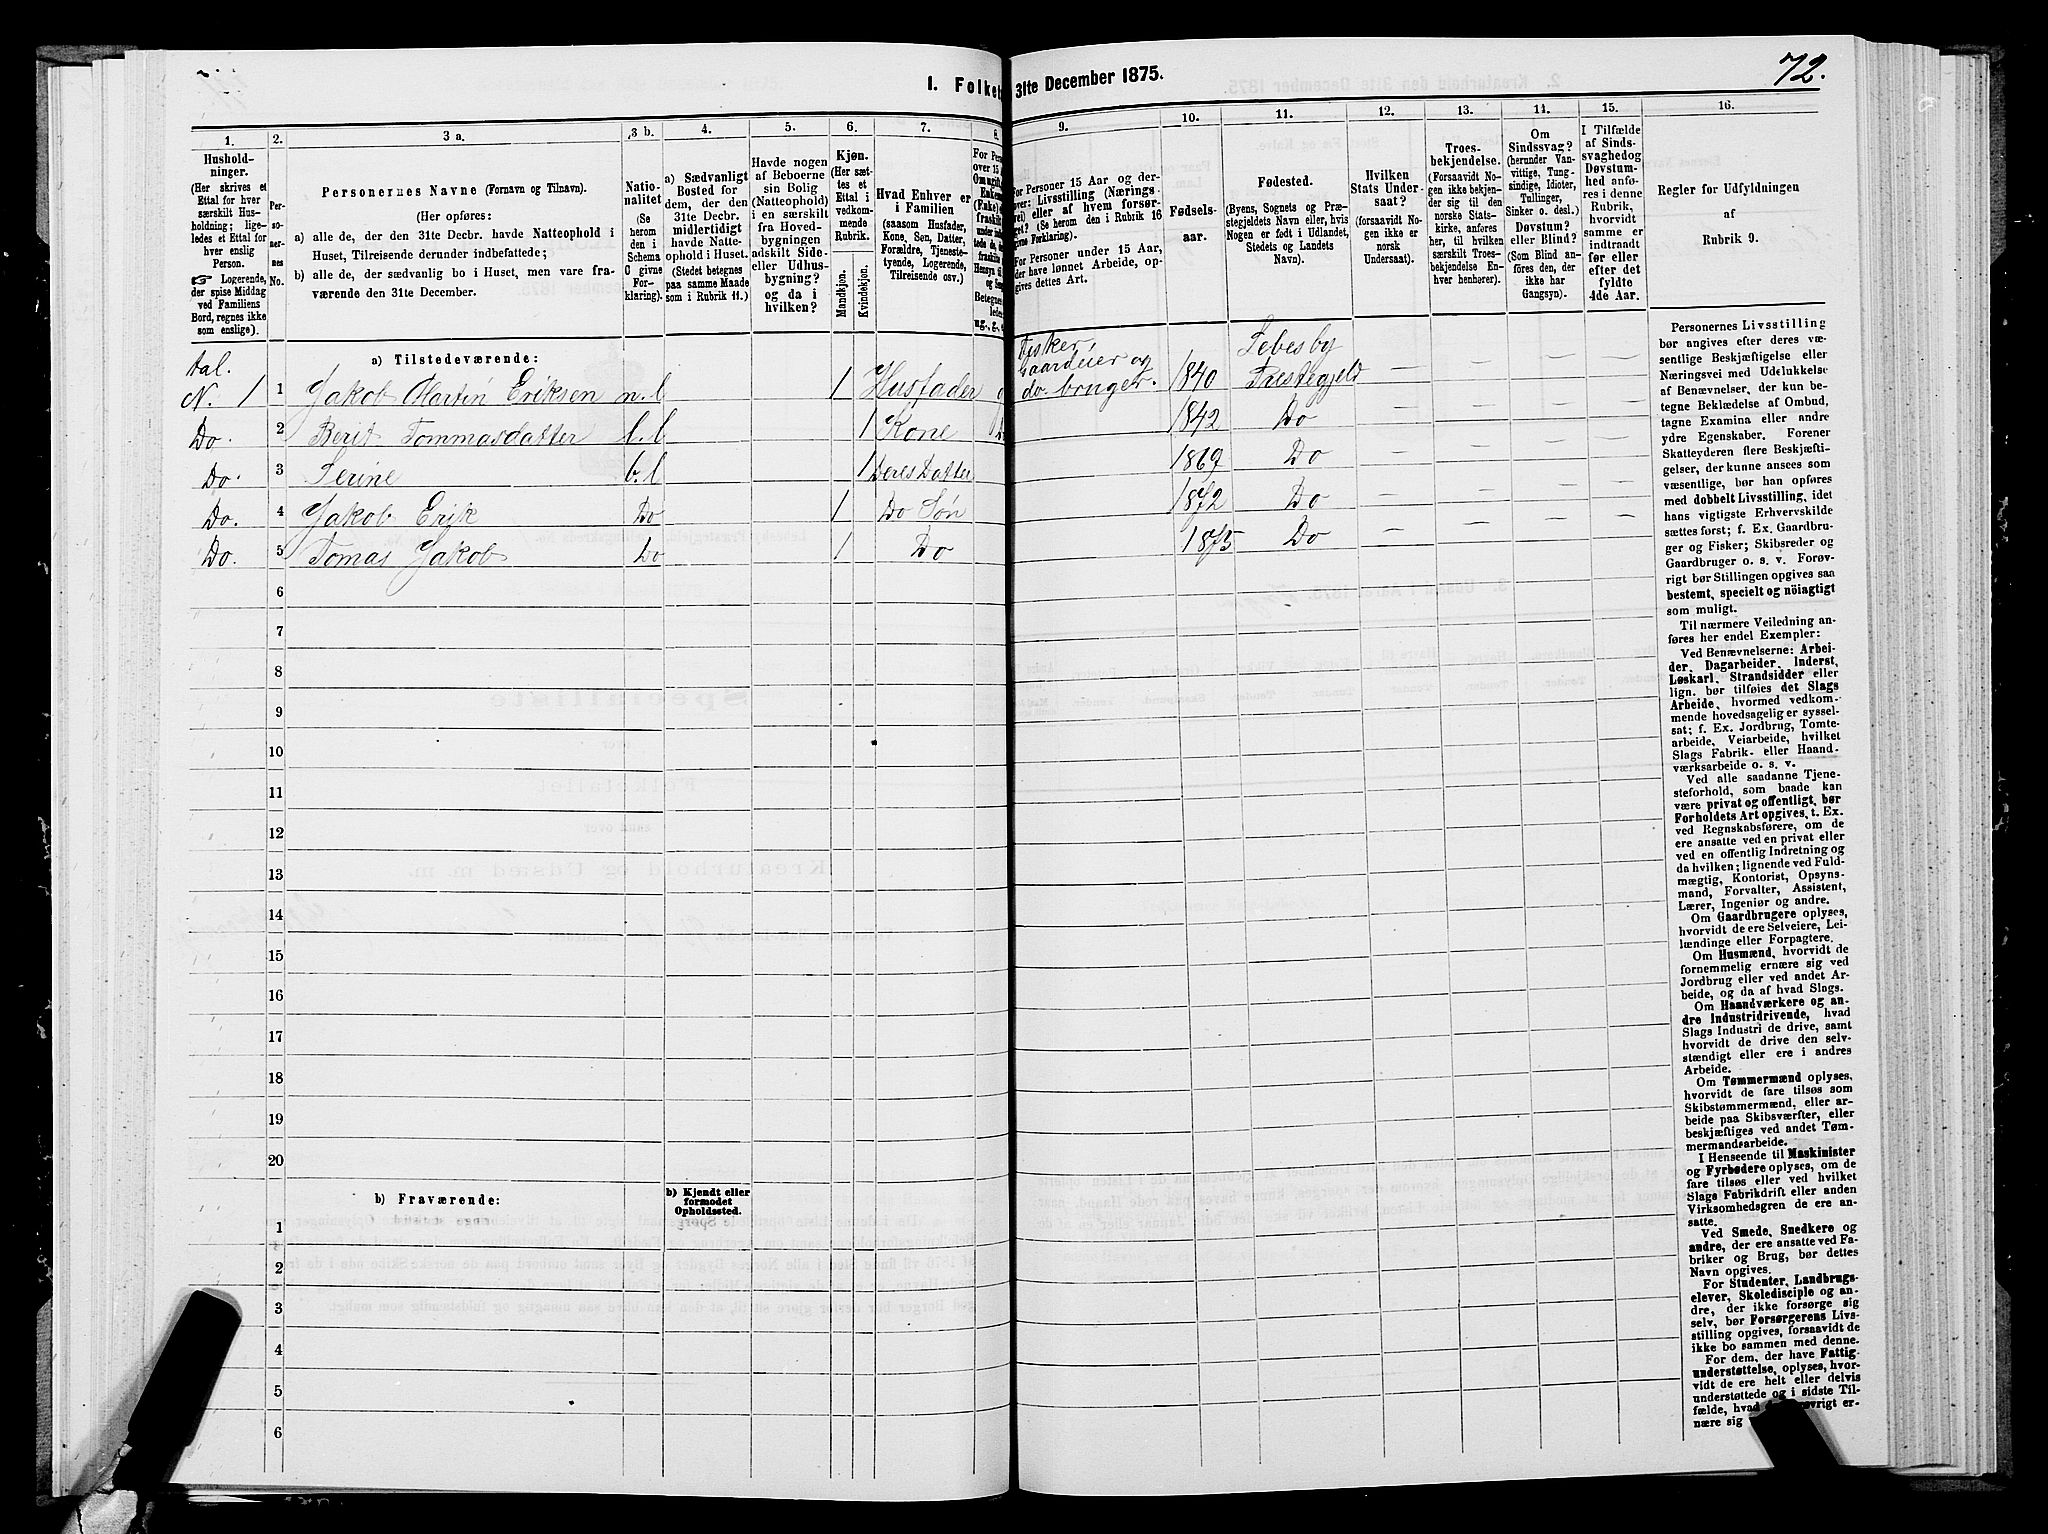 1. Folket
31te December 1875.
72.
1.
2.
3 a.
3 b.
4.
5.
6.
7.
8.
9.
10.
11.
12.
13.
14.
15.
16.
Hushold-
ninger.
(Her skrives et
Ettal for hver
særskilt Hus-
holdning; lige-
ledes et Ettal for
hver enslig
Person.
☞ Logerende,
der spise Middag
ved Familiens
Bord, regnes ikke
som enslige).
Per-
so-
ner-
nes
No.
Personernes Navne (Fornavn og Tilnavn).
(Her opføres:
a) alle de, der den 31te Decbr. havde Natteophold i
Huset, Tilreisende derunder indbefattede;
b) alle de, der sædvanlig bo i Huset, men vare fra-
værende den 31te December.
Natio-
nalitet
(Se
herom
den i
Schema
C givne
For-
klaring).
a) Sædvanligt
Bosted for
dem, der den
31te Decbr.
midlertidigt
havde Natte-
ophold i Huset.
(Stedet betegnes
paa samme Maade
som i Rubrik 11.)
Havde nogen
af Beboerne
sin Bolig
(Natteophold)
i en særskilt
fra Hoved-
bygningen
adskilt Side-
eller Udhus-
bygning?
og da i
hvilken?
Kjøn.
(Her sæt-
tes et
Ettal i
vedkom-
mende
Rubrik.
Mandkjøn.
Kvindekjøn.
Hvad Enhver er
i Familien
(saasom Husfader,
Kone, Søn, Datter,
Forældre, Tjeneste-
tyende, Logerende,
Tilreisende osv.)
For Personer 15 Aar og der-
over: Livsstilling (Nærings-
vei) eller af hvem forsør-
get? (Se herom den i Rubrik 16
givne Forklaring).
For Personer under 15 Aar,
der have lønnet Arbeide, op-
gives dettes Art.
Fødsels-
aar.
Fødested.
(Byens, Sognets og Præ-
stegjeldets Navn eller, hvis
Nogen er født i Udlandet,
Stedets og Landets
Navn).
Hvilken
Stats Under-
saat?
(forsaavidt No-
gen ikke er
norsk
Undersaat).
Troes-
bekjendelse.
(Forsaavidt No-
gen ikke bekjen-
der sig til den
norske Stats-
kirke, anføres
her, til hvilken
særskilt Troes-
bekjendelse En-
hver henhører).
Om
Sindssvag?
(herunder Van-
vittige, Tung-
sindige, Idioter,
Tullinger,
Sinker o. desl.)
Døvstum?
eller Blind?
(Som Blind an-
føres den, der
ikke har
Gangsyn).
I Tilfælde
af Sinds-
svaghed og
Døvstum-
hed anfø-
res i denne
Rubrik,
hvorvidt
samme er
indtraadt
før eller
efter det
fyldte
4de Aar.
Regler for Udfyldningen
af
Rubrik 9.
a) Tilstedeværende:
N. 1 1 Jakob Martin Eriksen n.l 1 Husfader Fisker, Gaardeier og do. bruger. 1840 Lebesby Prestegjeld
Do. 2 Berit Tommasdatter l.l 1 Kone 1842 Do
Do. 3 b.l 1 Deres Datter 1869 Do
Do. 4 Jakob Erik Do 1 Do Søn 1872 Do
Do. 5 Tomas Jakob Do 1 Do 1875 Do
6
7
8
9
10
11
12
13
14
15
16
17
18
19
20
b) Fraværende:
b) Kjendt eller
formodet
Opholdssted.
1
2
3
4
5
6
Personernes Livsstilling
bør angives efter deres væ-
sentlige Beskjæftigelse eller
Næringsvei med Udelukkelse
af Benævnelser, der kun be-
tegne Beklædelse af Ombud,
tagne Examina eller andre
ydre Egenskaber. Forener
Skatteyderen flere Beskjæfti-
gelser, der kunne ansees som
væsentlige, bør han opføres
med dobbelt Livsstilling, idet
hans vigtigste Erhvervskilde
sættes først; f. Ex. Gaardbru-
ger og Fisker; Skibsreder og
Gaardbruger o. s. v. Forøv-
rigt bør Stillingen opgives saa
bestemt, specielt og nøiagtigt
som muligt.
Til nærmere Veiledning an-
føres her endel Exempler:
Ved Benævnelserne: Arbei-
der, Dagarbeider, Inderst,
Løskarl, Strandsidder eller
lign. bør tilføies det Slags
Arbeide, hvormed vedkom-
mende hovedsagelig er syssel-
sat; f. Ex. Jordbrug, Tomte-
arbeide, Veiarbeide, hvilket
Slags Fabrik- eller Haand-
værksarbeide o. s. v.
Ved alle saadanne Tjene-
steforhold, som baade kan
være privat og offentligt, bør
Forholdets Art opgives, t. Ex.
ved Regnskabsførere, om de
ere ansatte ved en privat eller
ved en offentlig Indretning og
da hvilken; lignende ved Fuld-
mægtig, Kontorist, Opsyns-
mand, Forvalter, Assistent,
Lærer, Ingeniør og andre.
Om Gaardbrugere oplyses,
hvorvidt de ere Selveiere, Lei-
lændinge eller Forpagtere.
Om Husmænd, hvorvidt de
fornemmelig ernære sig ved
Jordbrug eller ved andet Ar-
beide, og da af hvad Slags.
Om Haandværkere og an-
dre Industridrivende, hvad
Slags Industri de drive, samt
hvorvidt de drive den selv-
stændigt eller ere i andres
Arbeide.
Om Tømmermænd oplyses,
hvorvidt de fare tilsøs som
Skibstømmermænd, eller ar-
beide paa Skibsværfter, eller
beskjæftiges ved andet Tøm-
mermandsarbeide.
I Henseende til Maskinister
og Fyrbødere oplyses, om de
fare tilsøs eller ved hvilket
Slags Fabrikdrift eller anden
Virksomhedsgren de ere an-
satte.
Ved Smede, Snedkere og
andre, der ere ansatte ved Fa-
briker og Brug, bør dettes
Navn opgives.
For Studenter, Landbrugs-
elever, Skoledisciple og an-
dre, der ikke forsørge sig
selv, bør Forsørgerens Livs-
stilling opgives, forsaavidt de
ikke bo sammen med denne.
For dem, der have Fattig-
understøttelse, oplyses, hvor-
vidt de ere helt eller delvis
understøttede og i sidste Til-
fælde, hvad
nære sig